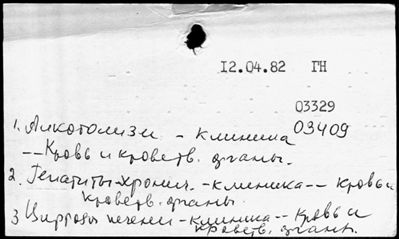 12.04.82 ГН
03329
1. Алкоголизм - клиника 03409
-- Кровь и кроветв. органы.
2. Гепатиты-хронич. - клиника -- кровь и
кроветв. органы.
3 Циррозы печени - клиника -- кровь и
кроветв. органы.